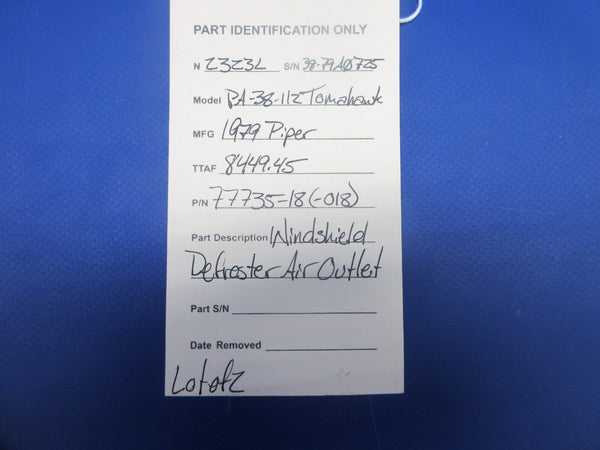 PART IDENTIFICATION ONLY
N 2323L S/N 38-79A0725
Model PA-38-112 Tomahawk
MFG 1979 Piper
TTAF 8449.45
P/N 77735-18 (-018)
Part Description Windshield
Defroster Air Outlet
Part S/N
Date Removed
Lot of 2